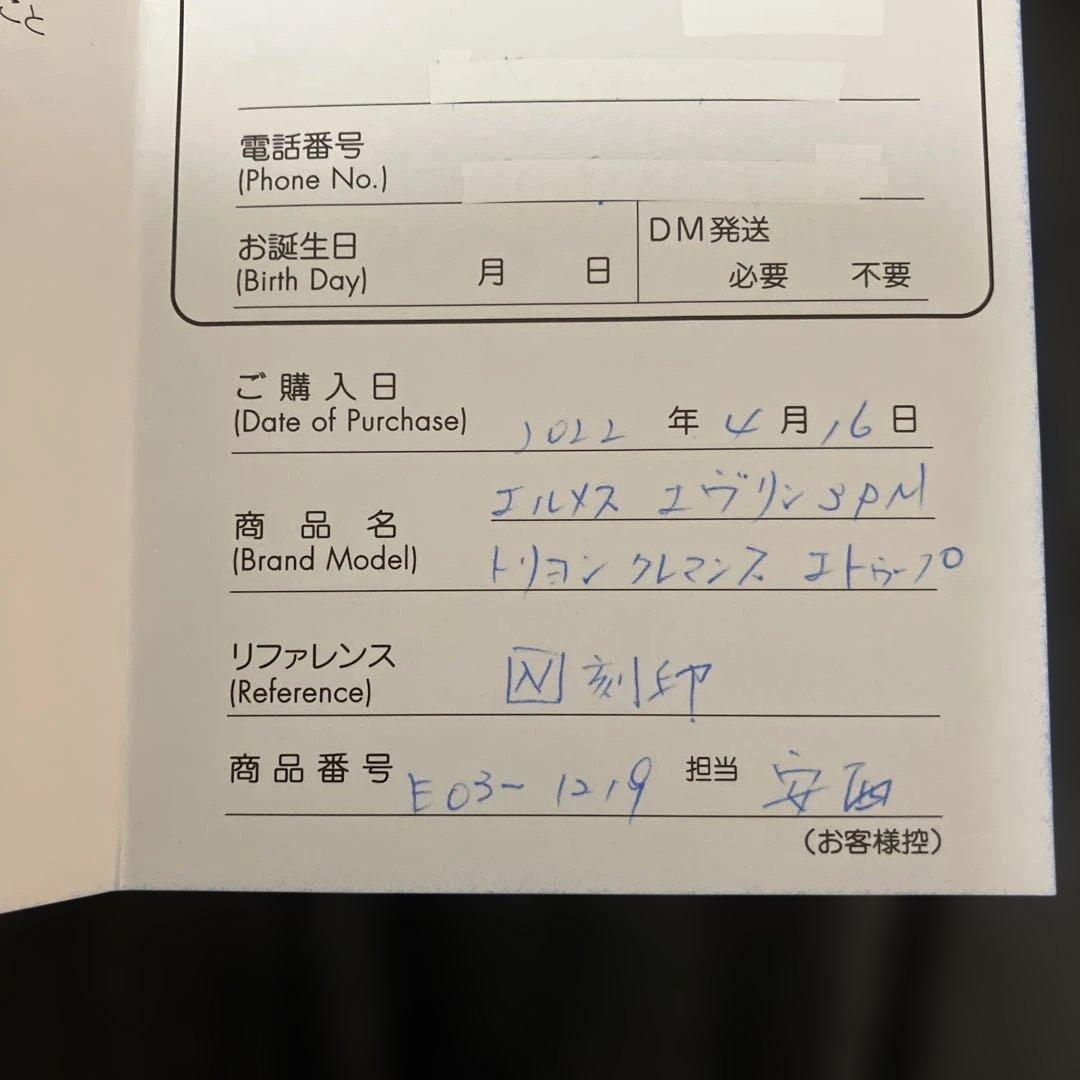 こと
電話番号
(Phone No.)
お誕生日 月 日 DM発送
(Birth Day) 必要 不要
ご購入日
(Date of Purchase) 2022 年 4 月 16 日
商品名 エルメス エヴリン3PM
(Brand Model) トリヨン クレマンス エトゥープ
リファレンス
(Reference) N 刻印
商品番号 E03-1219 担当 安西
(お客様控)